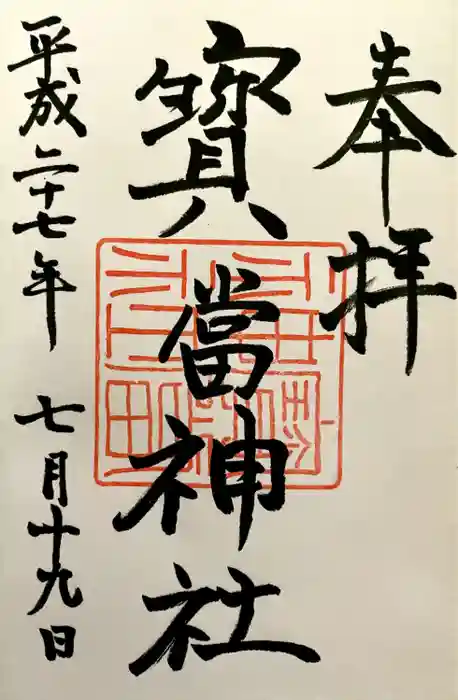 奉拝
寳當神社
平成二十七年 七月十九日